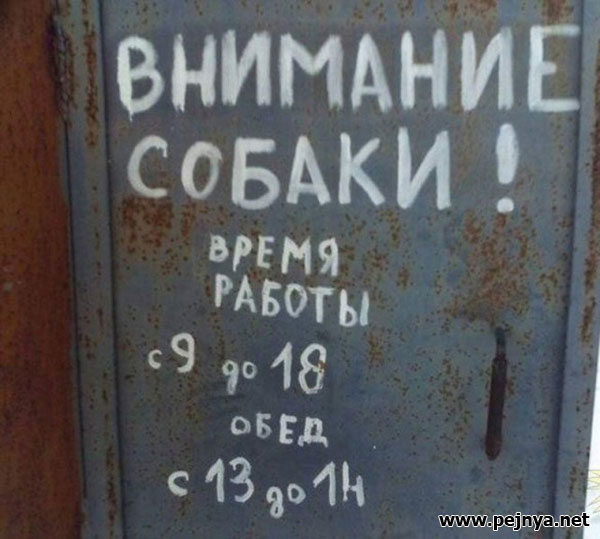 ВНИМАНИЕ
СОБАКИ !
ВРЕМЯ
РАБОТЫ
с 9 до 18
ОБЕД
с 13 до 14
www.pejnya.net